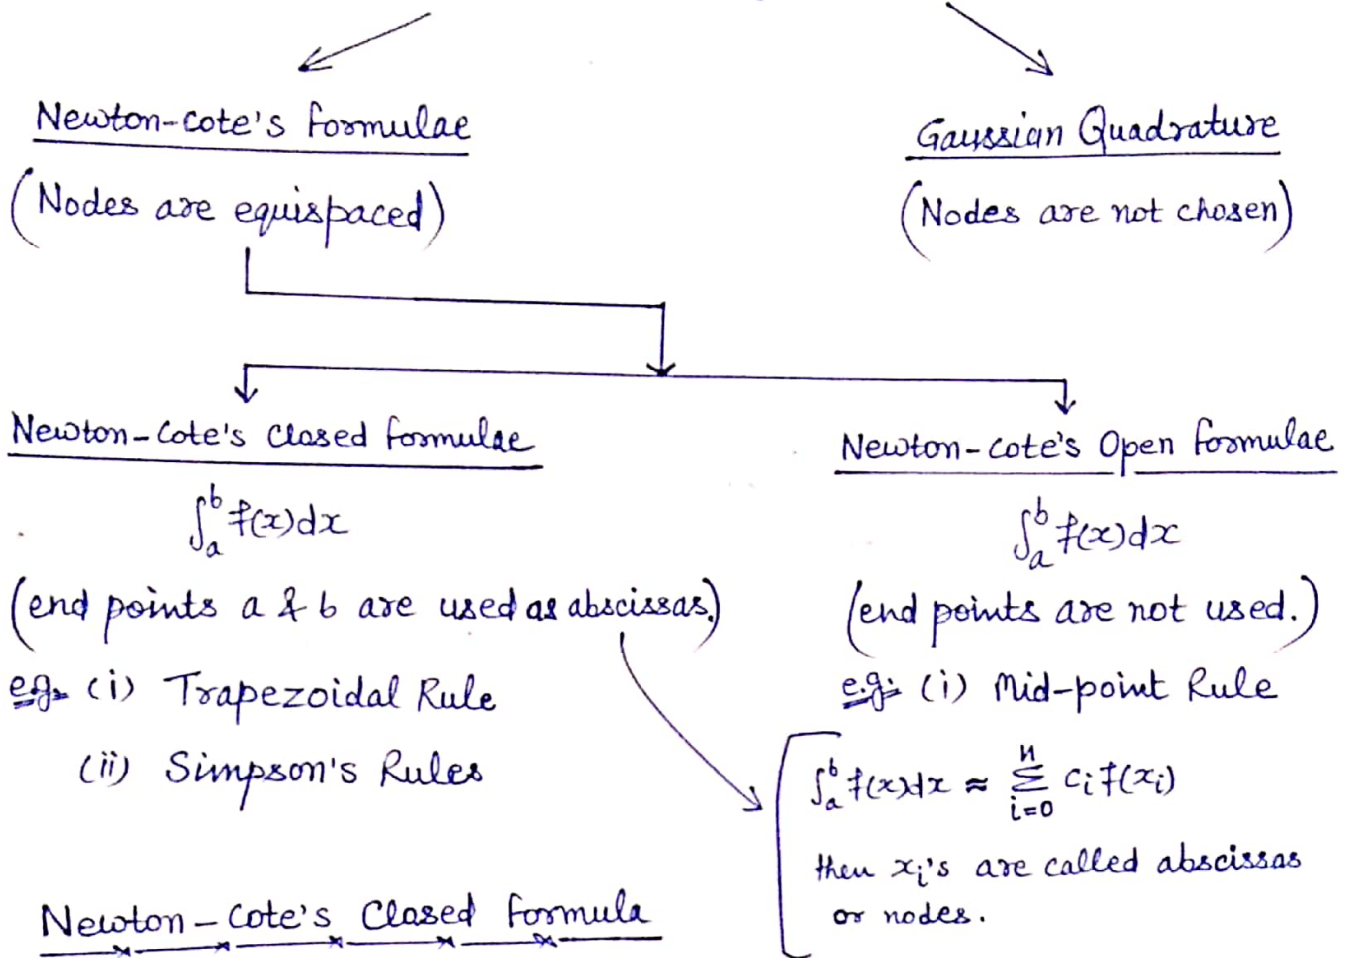 Newton-cote's formulae
(Nodes are equispaced)
Gaussian Quadrature
(Nodes are not chosen)
Newton-Cote's Closed formulae
∫_a^b f(x)dx
(end points a & b are used as abscissas.)
e.g. (i) Trapezoidal Rule
(ii) Simpson's Rules
Newton-cote's Open formulae
∫_a^b f(x)dx
(end points are not used.)
e.g. (i) Mid-point Rule
∫_a^b f(x)dx ≈ Σ_{i=0}^n c_i f(x_i)
then x_i's are called abscissas
or nodes.
Newton-Cote's Closed formula